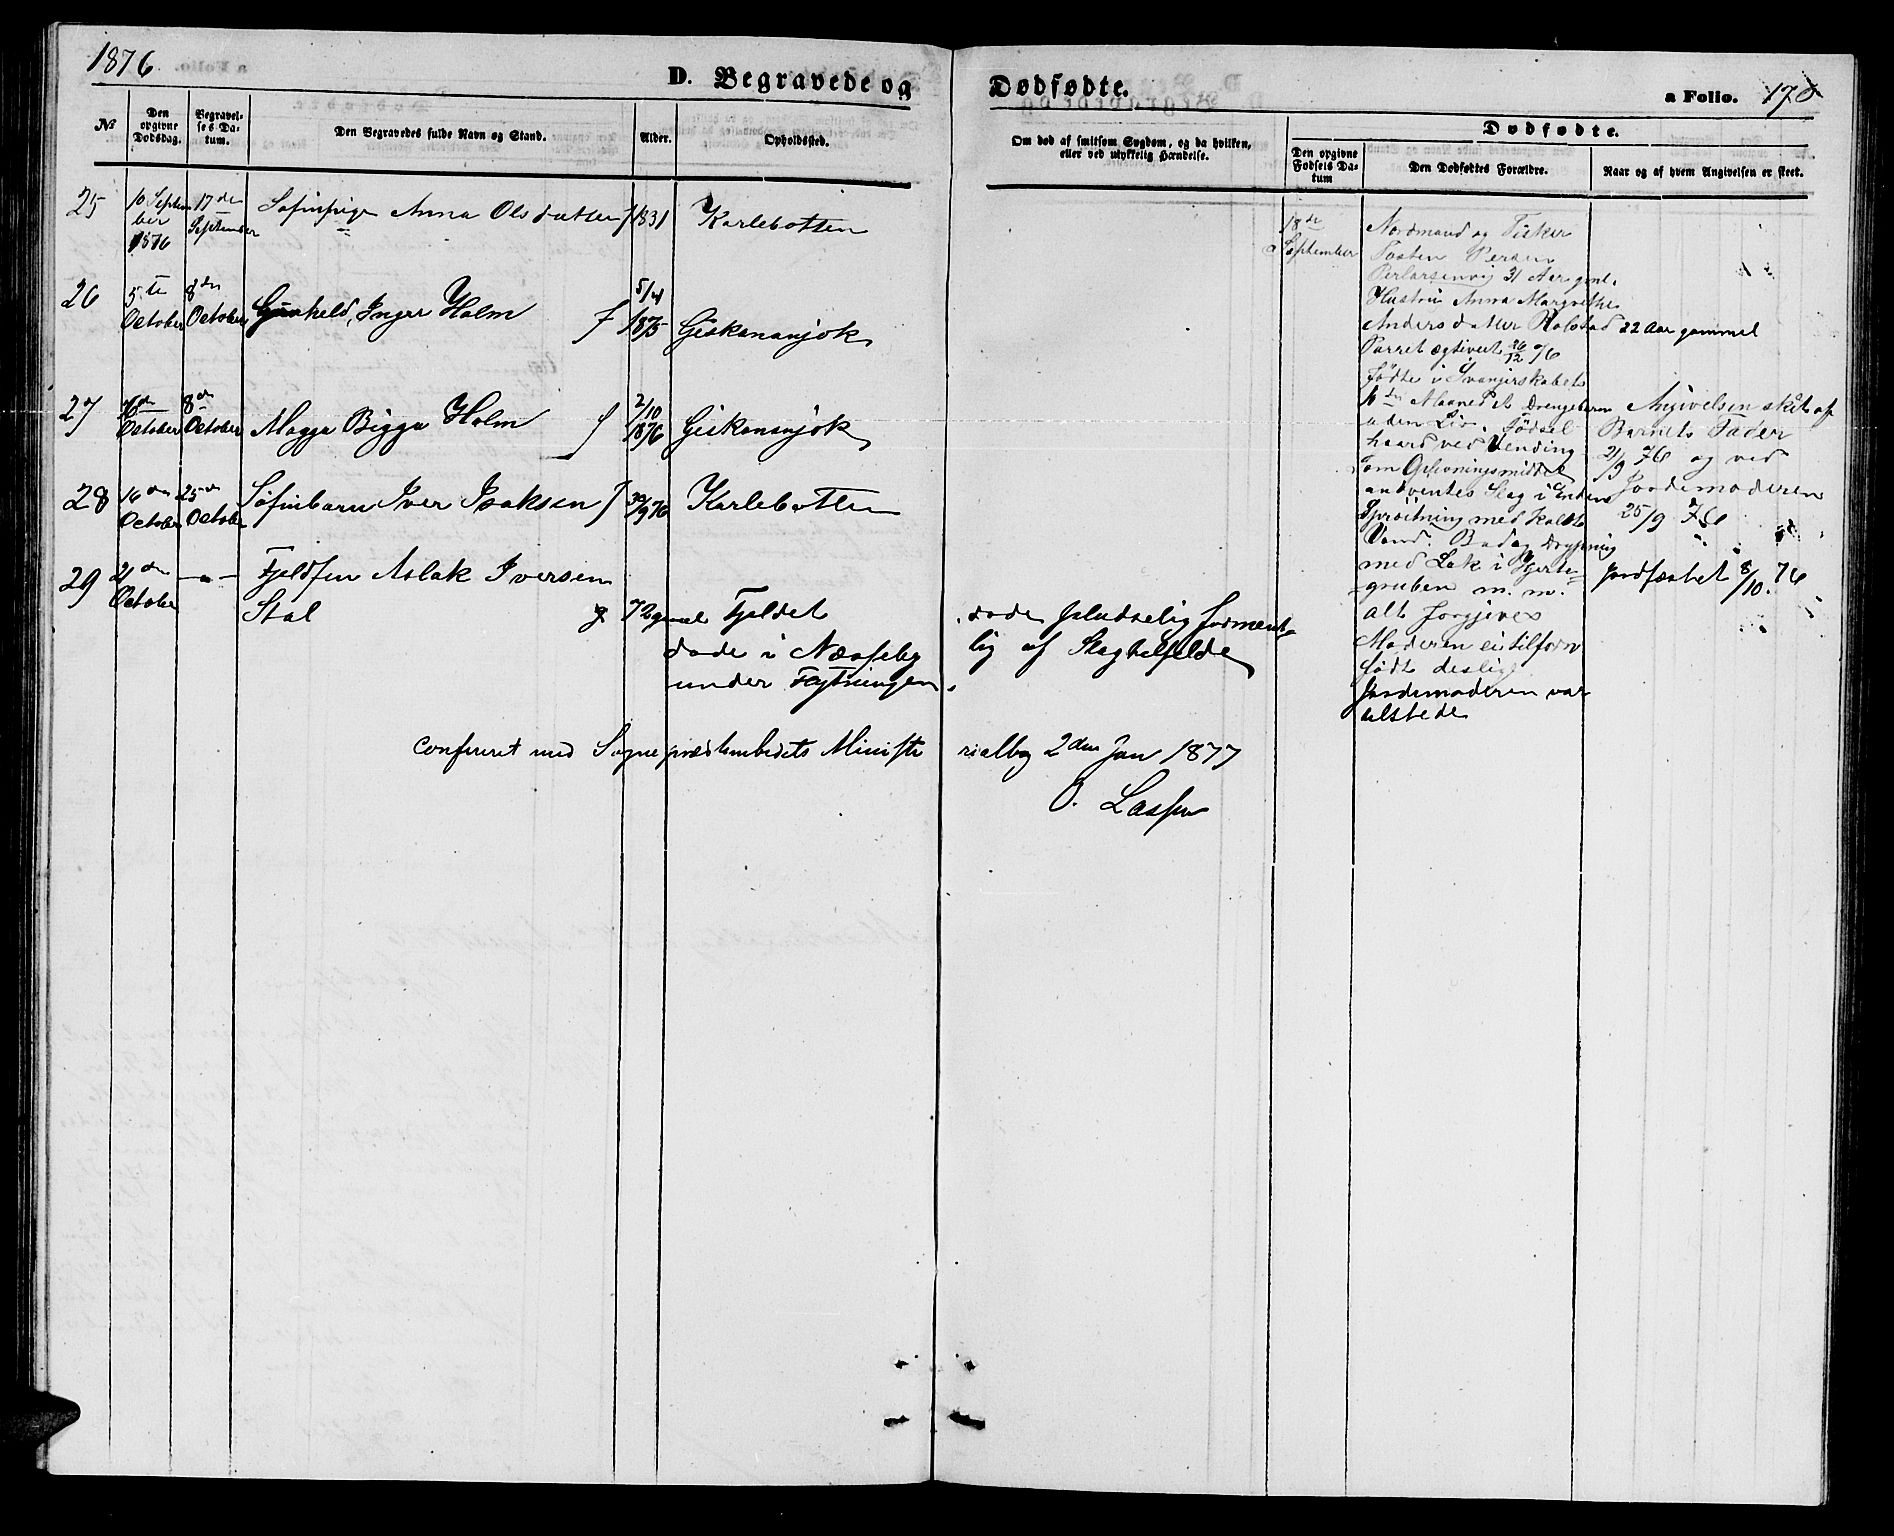 1876.
D. Begravede og Dødfødte.
a Folio. 178
No
Den opgivne Dødsdag.
Begravelses Datum.
Den Begravedes fulde Navn og Stand.
Alder.
Opholdssted.
Om død af smitsom Sygdom, og da hvilken, eller ved ulykkelig Hændelse.
Dødfødte.
Den opgivne Fødsels Datum
Den Dødfødtes Forældre.
Naar og af hvem Angivelsen er skeet.
25 10 September 1876 17de September Søfinpige Anna Olsdatter f 1831 Karlebotten
26 5te October 8de October Gunheld, Inger Holm f 5/4 1875 Giskananjok
27 October 8de October Magga Bigga Holm f 2/10 1876 Giskananjok
28 16de October 25de October Søfinbarn Iver Isaksen f 30/9 76 Karlebotten
29 21de October — " — Fjeldfin Aslak Iversen
Stal g 72 gml Fjeldet døde pludselig forment-
døde i Næsseby lig af Slagtilfælde
under Flytningen.
18de September
Nordmand og Fisker
Tosten Persen
Perlarsenvig 31 Aar gml.
Hustru Anna Margrethe
Andersdatter Rolstad 22 Aar gammel
Parret ægteviet 26/12 76
fødte i Svangerskabets
10de Maaned et Drengebarn
uden Liv. Fødsel
haard ved Vending
Som Oplivningsmiddel
anvendtes Slag i Enden
Sprøitning med Koldt
Vand. Bad og Drypning
med Lak i Hjerte-
gruben m. m.
alt forgjeves
Moderen ei tilforn
født deslige
Jordemoderen var
tilstede
Angivelsen skêt af
Barnets Fader
21/9 76 og ved
Jordemoderen
25/9 76
Jordfæstet 8/10. 76
Confereret med Sognepræstembedets Ministerialbog 2den Jan 1877
O. Lassen